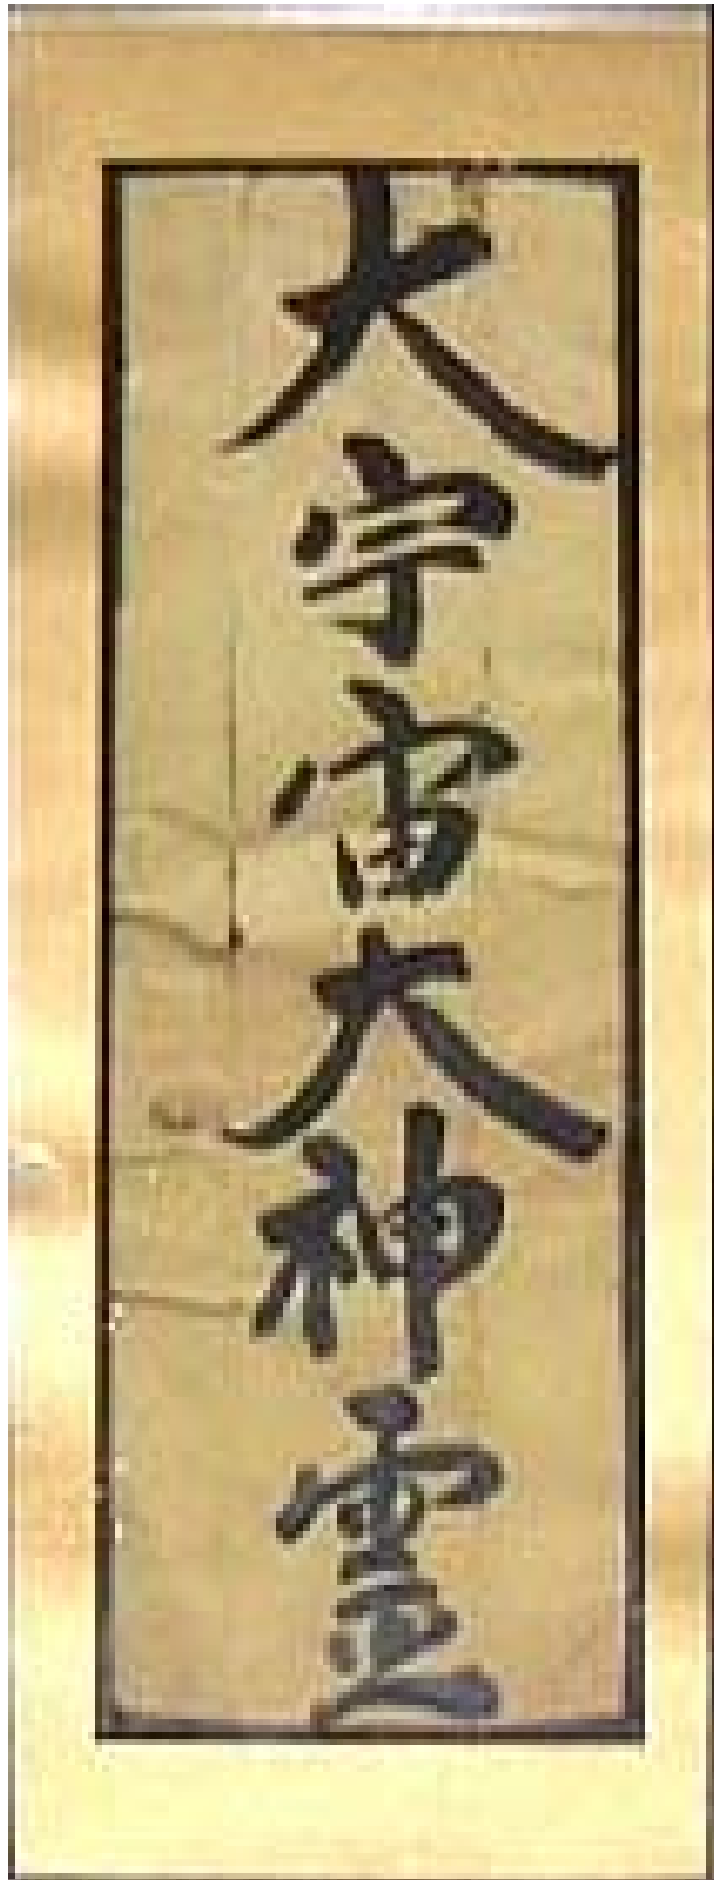 大宇宙大神靈